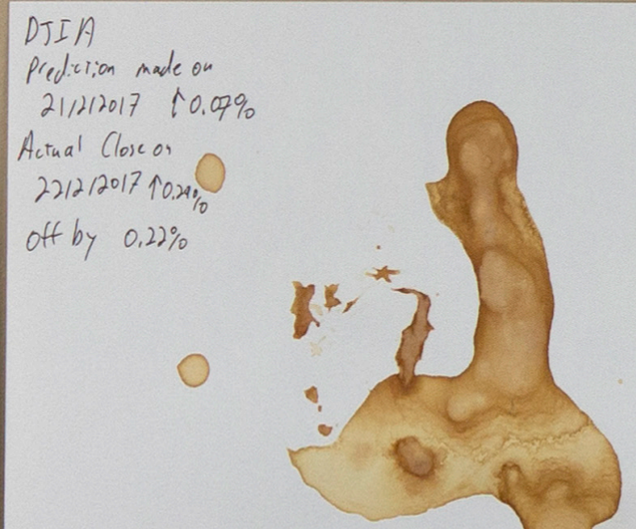 DJIA
Prediction made on
21/2/2017 ↑0.07%
Actual Close on
22/2/2017 ↑0.29%
off by 0.22%